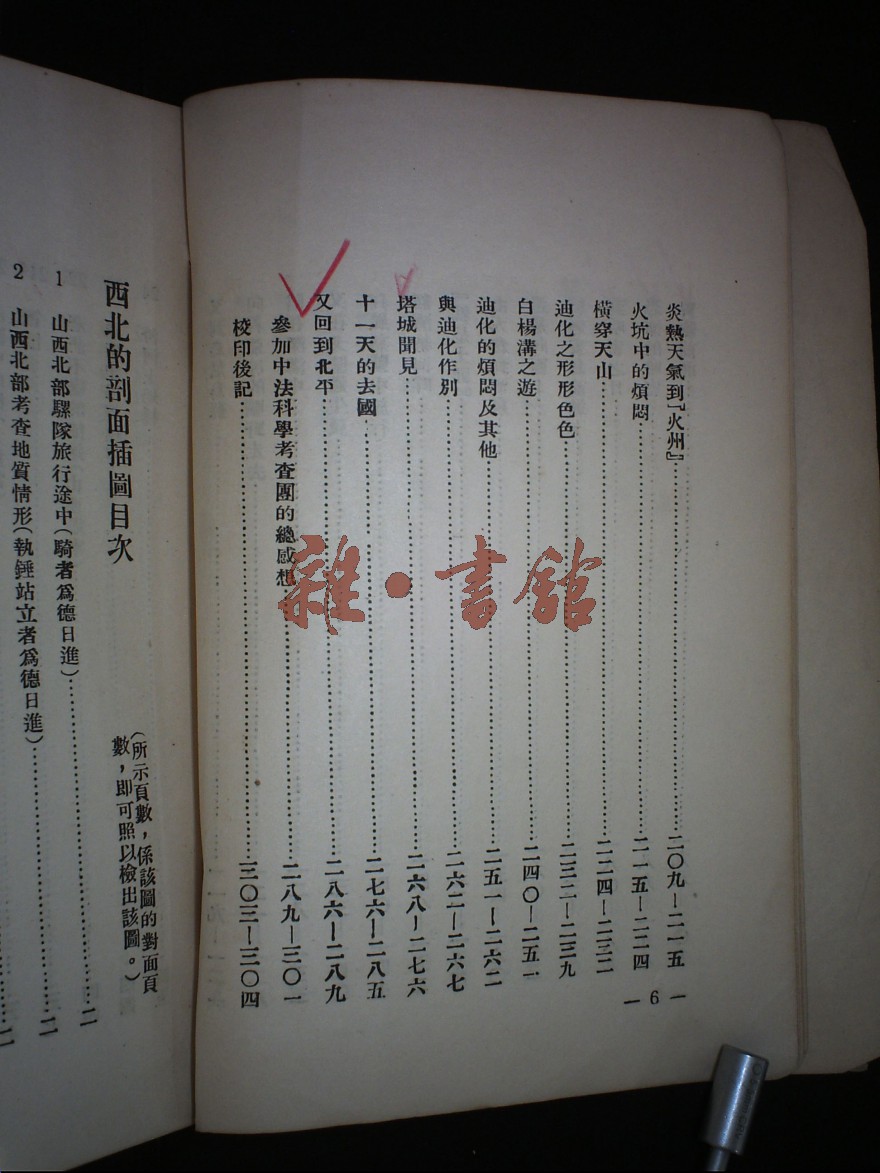 炎熱天氣到『火州』……二〇九—二一五
火坑中的煩悶……二一五—二二四
橫穿天山……二二四—二三二
迪化之形形色色……二三二—二三九
白楊溝之遊……二四〇—二五一
迪化的煩悶及其他……二五一—二六二
與迪化作別……二六二—二六七
塔城聞見……二六八—二七六
十一天的去國……二七六—二八五
又回到北平……二八六—二八九
參加中法科學考查團的總感想……二八九—三〇一
校印後記……三〇三—三〇四
— 6 —
西北的剖面插圖目次
(所示頁數，係該圖的對面頁
數，即可照以檢出該圖。)
1 山西北部騾隊旅行途中(騎者爲德日進)……二
2 山西北部考查地質情形(執錘站立者爲德日進)……二
雜·書館